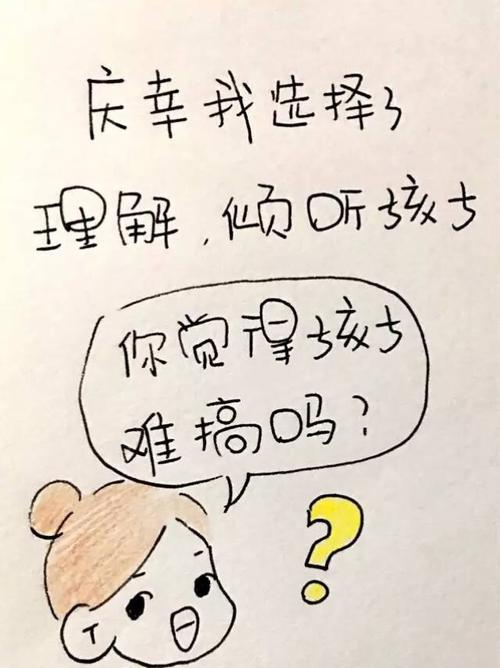 庆幸我选择了
理解,倾听孩子
你觉得孩子
难搞吗?
?